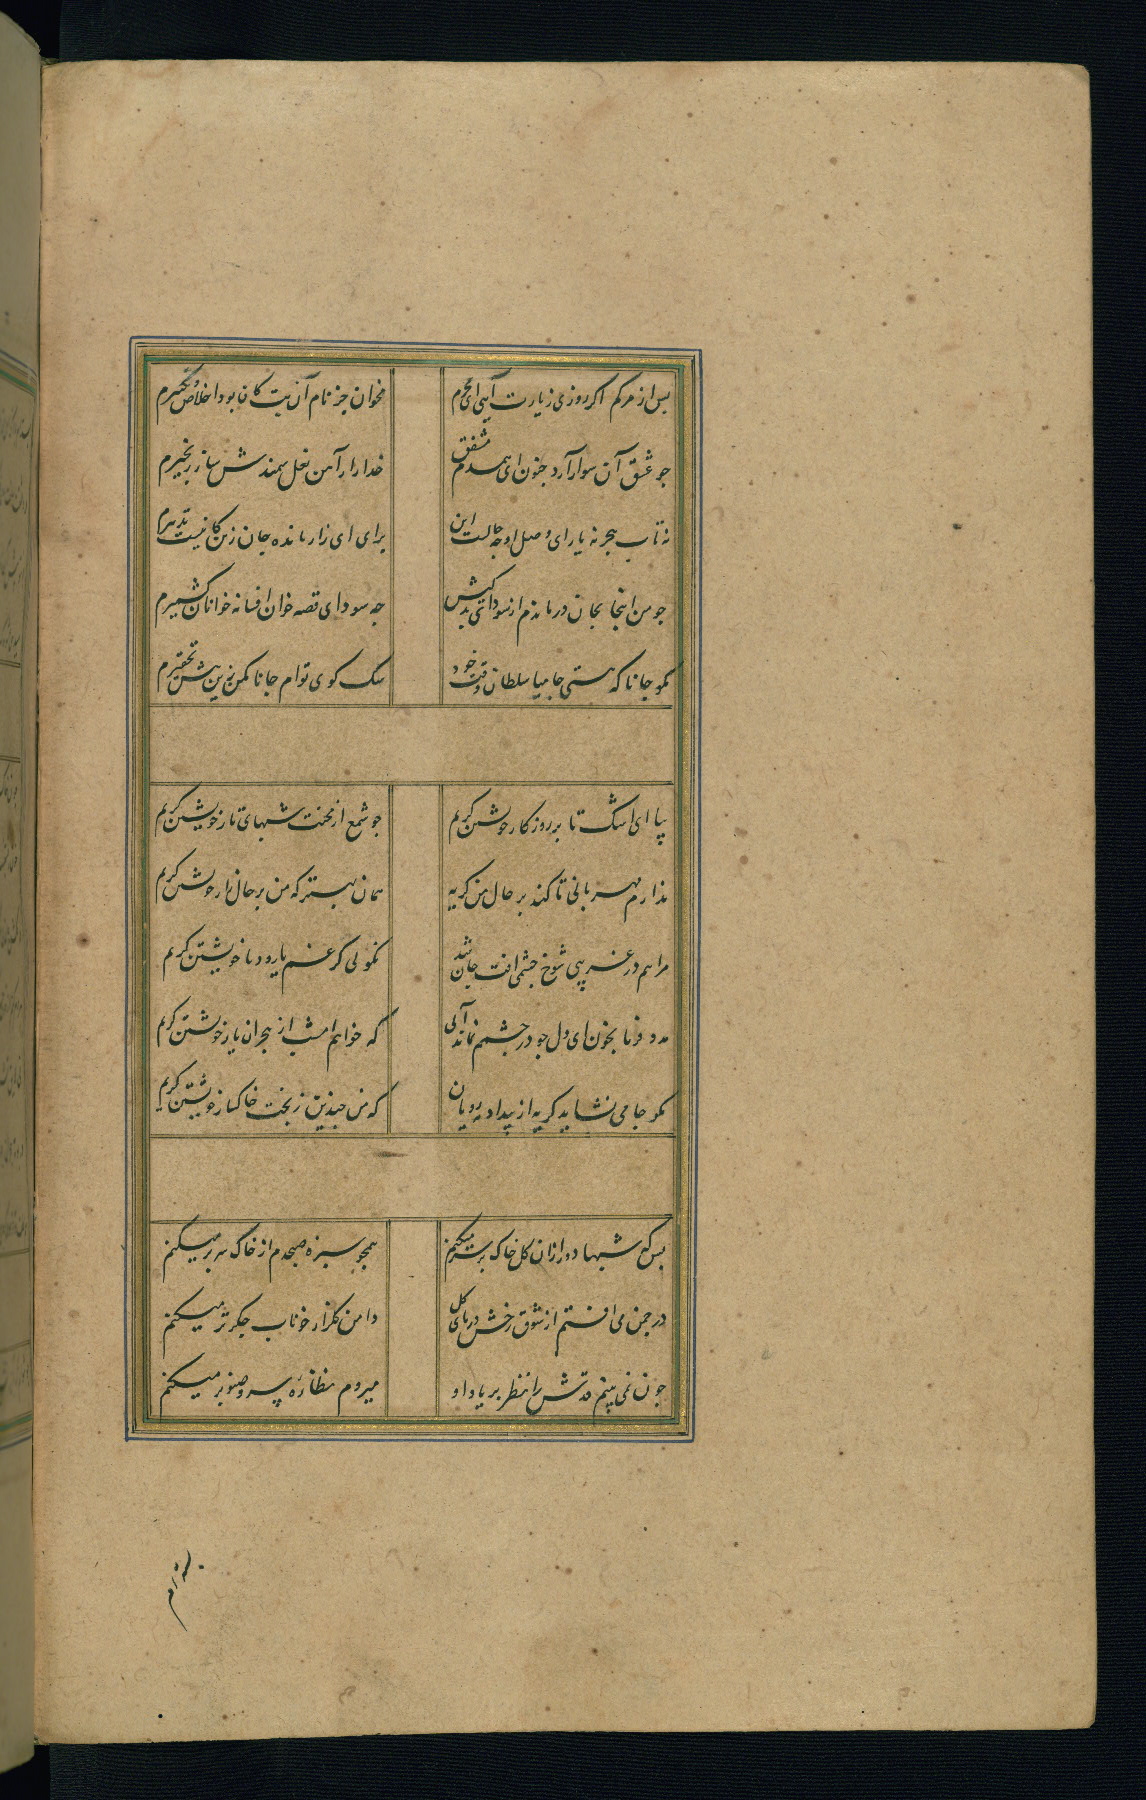 پس از مرکم اکر روزی زیارت آیی ای محرم
مخوان جز نام آن بت کان بود اخلاص و تکبیرم
جو عشق آن سوار آرد جنون ای همدم مشفق
خدا را ز آهن نعل سمندش ساز زنجیرم
نه تاب هجر نه یارای وصل او جه حالست این
برای ای زار مانده جان زتن کان نیست تدبیرم
جو من اینجا بجان درماندم از سودای
جه سود ای قصه خوان افسانه خوانان کشمیرم
مکو جانا که هستی جامیا سلطان وقت خود
سک کوی توام جانا مکن زین بیش تحقیرم
بیا ای اشک تا بر روزکار خویشتن کریم
جو شمع از محنت شبهای تار خویشتن کریم
ندارم مهربانی تا کند بر حال من کریه
همان بهتر که من بر حال زار خویشتن کریم
مرا هم در غریبی شوخ جشمی افت جان شد
نکویی کر غم یار و دیار خویشتن کریم
مدد فرما بخون ای دل جو در جشمم نماند آبی
که خواهم امشب از هجران یار خویشتن کریم
مکو جامی نشاید کریه از بیداد مه رویان
که من جندین ز بخت خاکسار خویشتن کریم
بس که شبها دور ازان کل خاک بر سر میکنم
همجو سبزه صبحدم از خاک سر بر میکنم
در جمن می افتم از شوق رخش در پای کل
دامن کلزار خوناب جکر تر میکنم
جون نمی بینم قدش را در نظر بر یاد او
میروم نظاره سرو و صنوبر میکنم